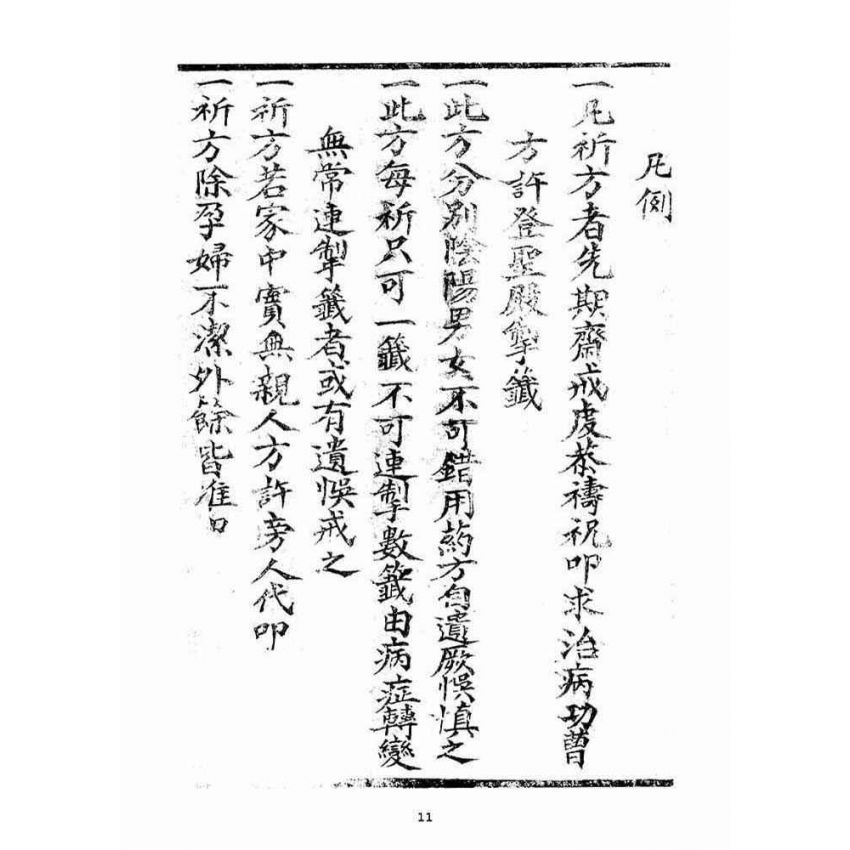 凡例
一凡祈方者先期齋戒虔恭禱祝叩求治病功曹
方許登聖殿掣籤
一此方分別陰陽男女不可錯用藥方自遺厥悞慎之
一此方每祈只可一籤不可連掣數籤由病症轉變
無常連掣籤者或有遺悞戒之
一祈方若家中實無親人方許旁人代叩
一祈方除孕婦不潔外餘皆准叩
11